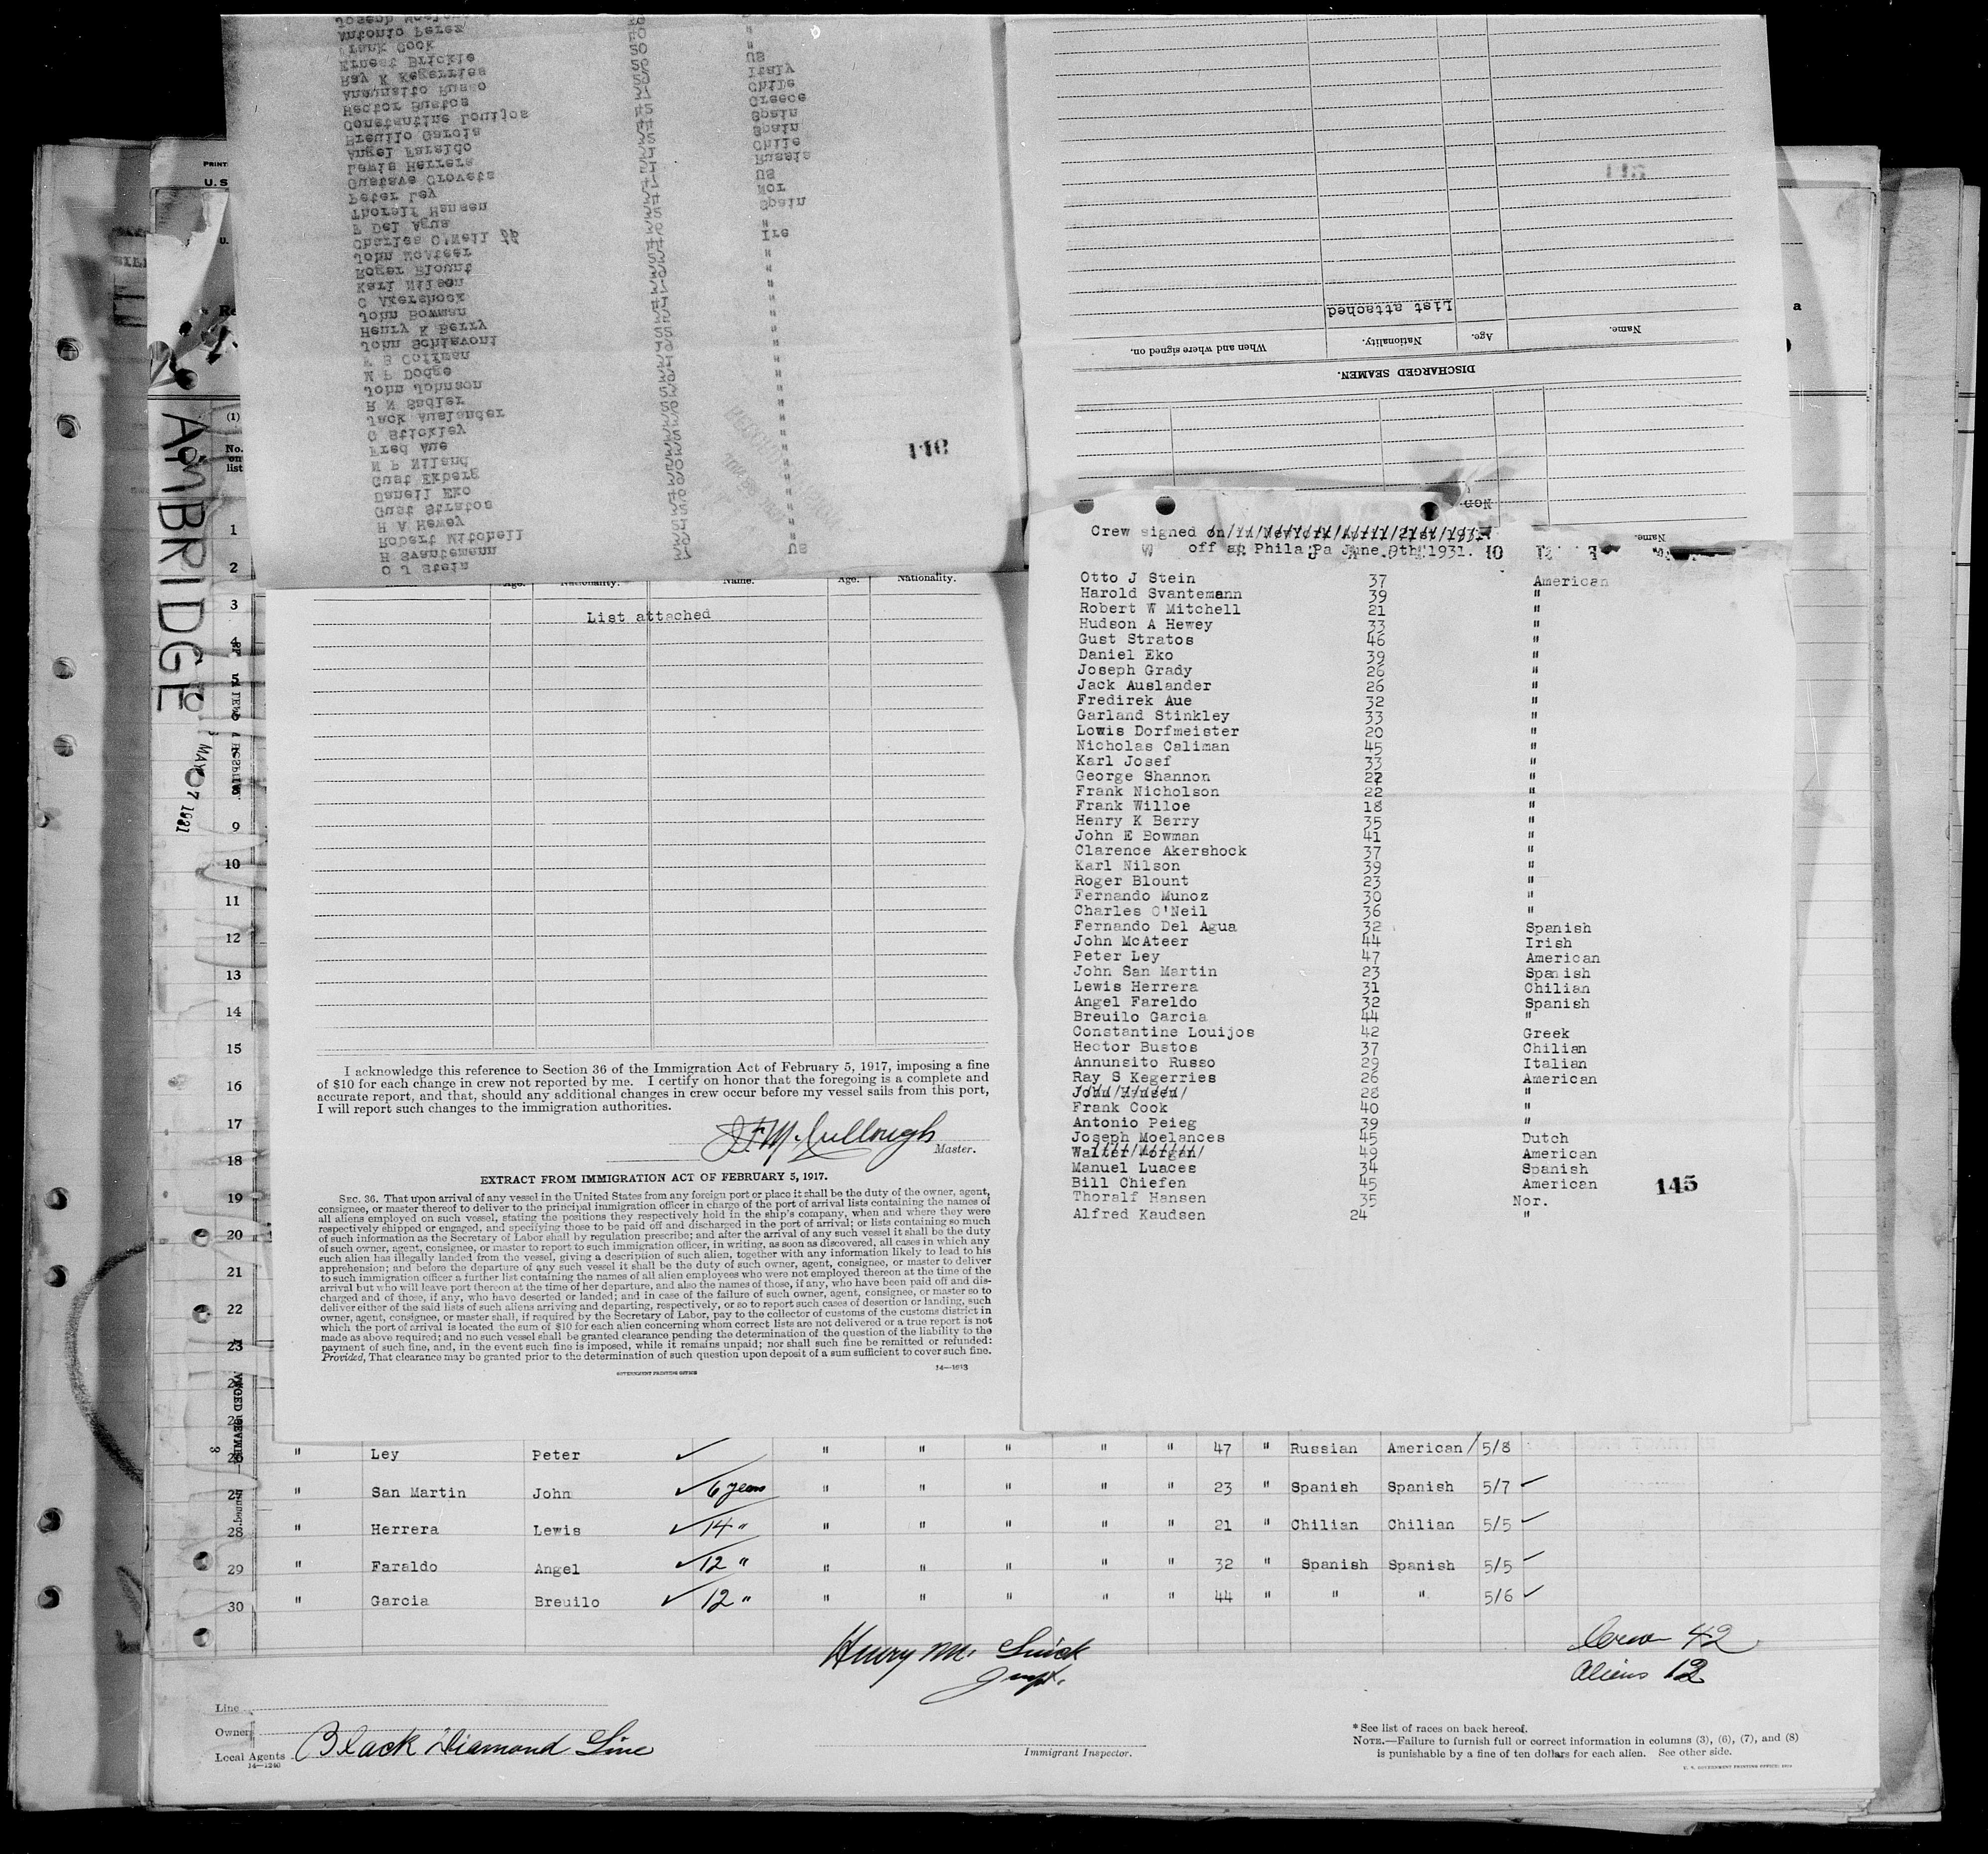 Joseph
Antonio Perez 40 "
Frank Cook 50
Ernest Brickle 26 US
Ray K Kegerries 29 Italy
Annunsito Russo 37 Chile
Hector Bustos 42 Greece
Constantine Louijos 44 Spain
Breuilo Garcia Spain
Angel Faraldo Chile
Lewis Herrera Russia
Gustave Grovets US
Peter Ley Nor
Thoralf Hansen Spain
F Del Agua "
Charles O'Neil Ire
John McAteer "
Roger Blount "
Karl Nilson "
C Akershock "
John Bowman "
Henry K Berry "
John Schiavoni "
Coffman "
W P Dodge "
John Johnson "
R N Sadler "
Jack Auslander "
G Stickley "
Fred Aue "
N P Niland "
Gust Ekberg "
Daneil Eko "
Gust Stratos "
H A Hewey "
Robert Mitchell 21 "
H Svantemann 39 "
O J Stein US
146
DISCHARGED SEAMEN.
Name. Age. Nationality. When and where signed on.
List attached
AMBRIDGE
MAY 07 1931
U.S
(1)
No. on list
1
2
3
Age. Nationality. Name. Age. Nationality.
List attached
9
10
11
12
13
14
15
16
17
18
19
20
21
22
23
I acknowledge this reference to Section 36 of the Immigration Act of February 5, 1917, imposing a fine
of $10 for each change in crew not reported by me. I certify on honor that the foregoing is a complete and
accurate report, and that, should any additional changes in crew occur before my vessel sails from this port,
I will report such changes to the immigration authorities.
McCullough
Master.
EXTRACT FROM IMMIGRATION ACT OF FEBRUARY 5, 1917.
SEC. 36. That upon arrival of any vessel in the United States from any foreign port or place it shall be the duty of the owner, agent,
consignee, or master thereof to deliver to the principal immigration officer in charge of the port of arrival lists containing the names of
all aliens employed on such vessel, stating the positions they respectively hold in the ship's company, when and where they were
respectively shipped or engaged, and specifying those to be paid off and discharged in the port of arrival; or lists containing so much
of such information as the Secretary of Labor shall by regulation prescribe; and after the arrival of any such vessel it shall be the duty
of such owner, agent, consignee, or master to report to such immigration officer, in writing, as soon as discovered, all cases in which any
such alien has illegally landed from the vessel, giving a description of such alien, together with any information likely to lead to his
apprehension; and before the departure of any such vessel it shall be the duty of such owner, agent, consignee, or master to deliver
to such immigration officer a further list containing the names of all alien employees who were not employed thereon at the time of the
arrival but who will leave port thereon at the time of her departure, and also the names of those, if any, who have been paid off and dis-
charged and of those, if any, who have deserted or landed; and in case of the failure of such owner, agent, consignee, or master so to
deliver either of the said lists of such aliens arriving and departing, respectively, or so to report such cases of desertion or landing, such
owner, agent, consignee, or master shall, if required by the Secretary of Labor, pay to the collector of customs of the customs district in
which the port of arrival is located the sum of $10 for each alien concerning whom correct lists are not delivered or a true report is not
made as above required; and no such vessel shall be granted clearance pending the determination of the question of the liability to the
payment of such fine, and, in the event such fine is imposed, while it remains unpaid; nor shall such fine be remitted or refunded:
Provided, That clearance may be granted prior to the determination of such question upon deposit of a sum sufficient to cover such fine.
14—1013
GOVERNMENT PRINTING OFFICE
Crew signed on New York April 21st 1931
off at Phila Pa June 9th 1931.
Otto J Stein 37 American
Harold Svantemann 39 "
Robert W Mitchell 21 "
Hudson A Hewey 33 "
Gust Stratos 46 "
Daniel Eko 39 "
Joseph Grady 26 "
Jack Auslander 26 "
Fredirek Aue 32 "
Garland Stinkley 33 "
Lowis Dorfmeister 20 "
Nicholas Caliman 45 "
Karl Josef 33 "
George Shannon 27 "
Frank Nicholson 22 "
Frank Willoe 18 "
Henry K Berry 35 "
John E Bowman 41 "
Clarence Akershock 37 "
Karl Nilson 39 "
Roger Blount 23 "
Fernando Munoz 30 "
Charles O'Neil 36 "
Fernando Del Agua 32 Spanish
John McAteer 44 Irish
Peter Ley 47 American
John San Martin 23 Spanish
Lewis Herrera 31 Chilian
Angel Fareldo 32 Spanish
Breuilo Garcia 44 "
Constantine Louijos 42 Greek
Hector Bustos 37 Chilian
Annunsito Russo 29 Italian
Ray S Kegerries 26 American
John Hansen 28 "
Frank Cook 40 "
Antonio Peieg 39 "
Joseph Moelances 45 Dutch
Walter Morgan 49 American
Manuel Luaces 34 Spanish
Bill Chiefen 45 American
Thoralf Hansen 35 Nor.
Alfred Kaudsen 24 "
145
26 " Ley Peter ✓ " " " " " 47 " Russian American / 5/8
27 " San Martin John ✓ 6 years " " " " " 23 " Spanish Spanish 5/7 ✓
28 " Herrera Lewis ✓ 14 " " " " " " 21 " Chilian Chilian 5/5 ✓
29 " Faraldo Angel ✓ 12 " " " " " " 32 " Spanish Spanish 5/5 ✓
30 " Garcia Breuilo ✓ 12 " " " " " " 44 " " " 5/6 ✓
Crew 42
Aliens 12
Henry M.
Line
Owners
Local Agents Black Diamond Line
14—1240
Immigrant Inspector.
* See list of races on back hereof.
NOTE.—Failure to furnish full or correct information in columns (3), (6), (7), and (8)
is punishable by a fine of ten dollars for each alien. See other side.
U. S. GOVERNMENT PRINTING OFFICE